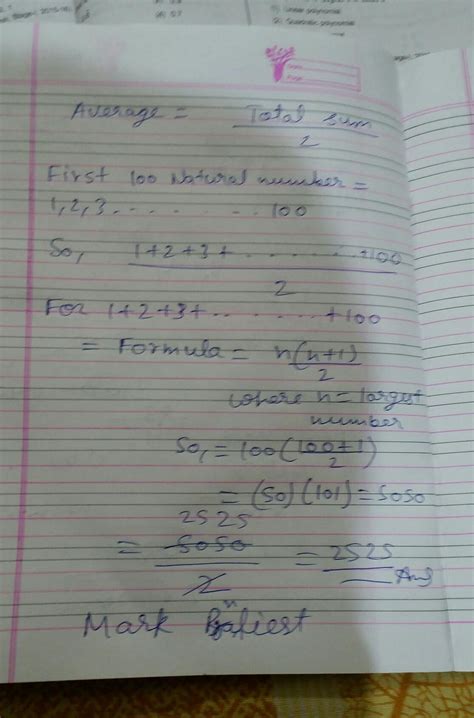 1) Linear polynomial
Date
Page
Average = Total sum
2
First 100 Natural number =
1, 2, 3 . . . . . . . . . 100
So, 1+2+3+ . . . . . . . +100
2
For 1+2+3+ . . . . . . . +100
= Formula = n(n+1)
2
where n = largest
number
So, = 100(100+1)
2
= (50)(101) = 5050
2525
= 5050 = 2525 Ans
2
Mark